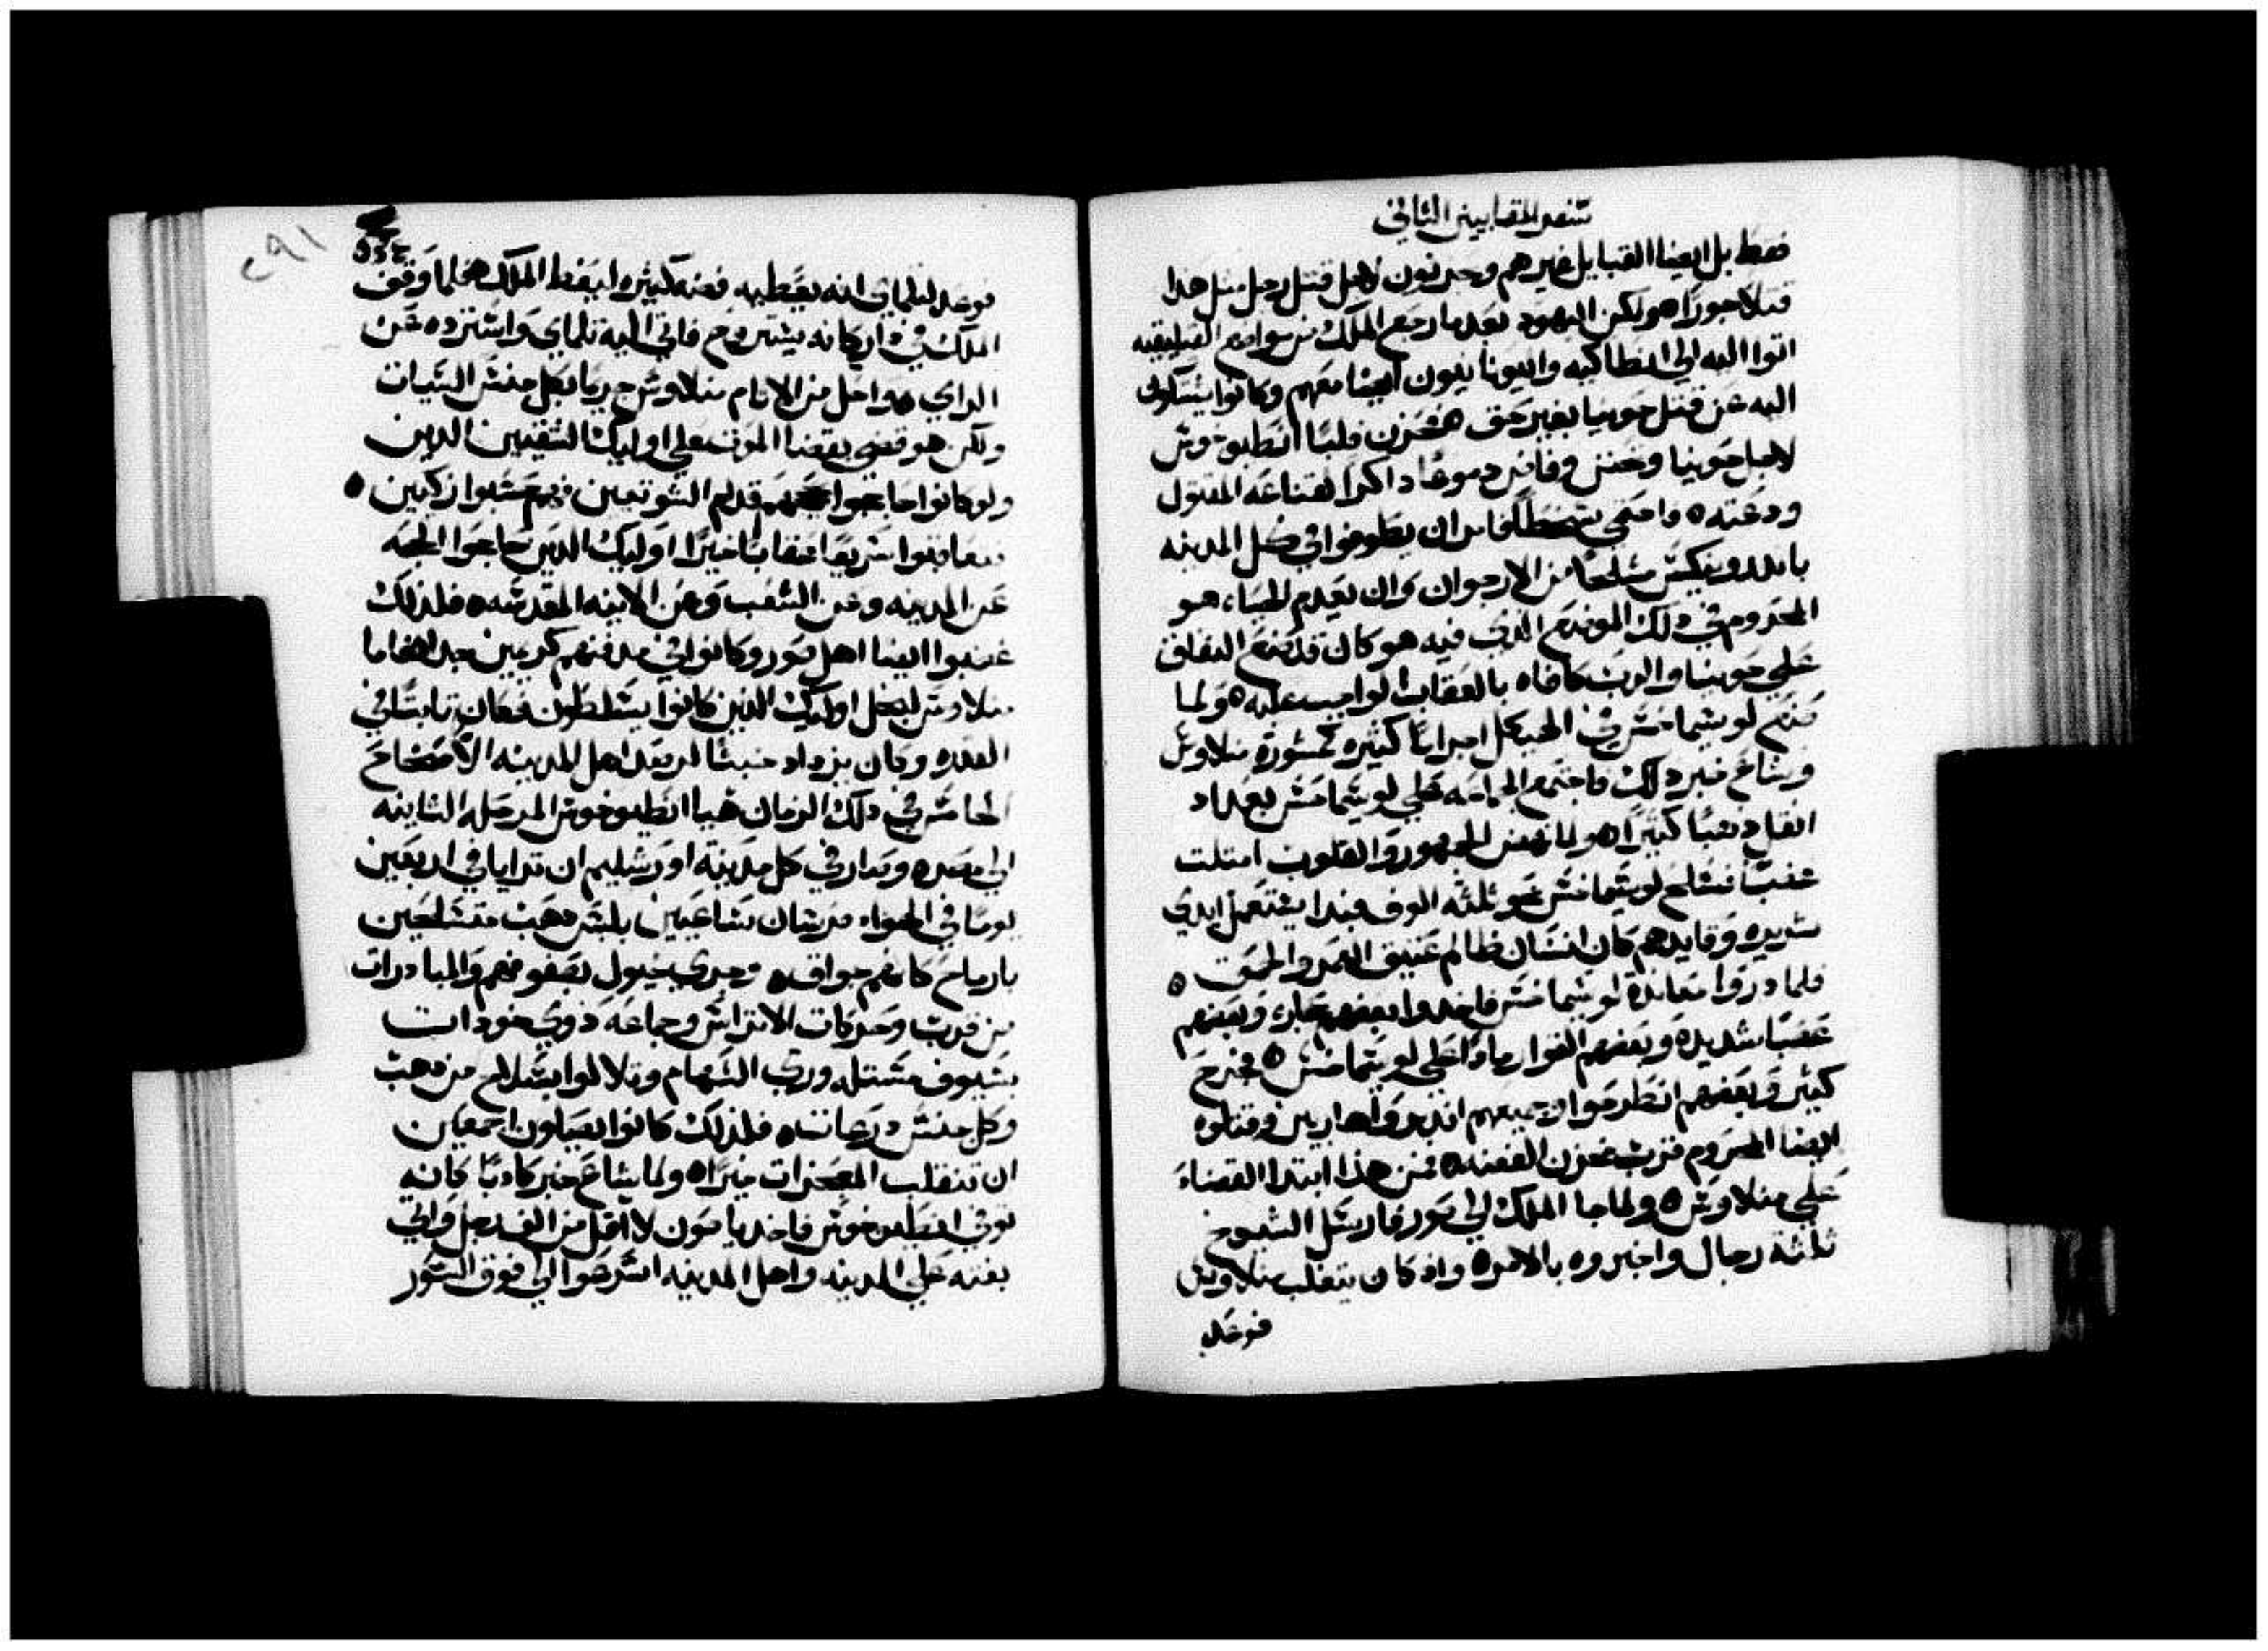 سفر المقابيين الثاني
فقط بل ايضا القبايل غيرهم وحردون لاجل قتل رجل مثل هذا
قتلا جورا ه ولكن اليهود بعد ما رجع الملك من مواضع القيليقيه
اتوا اليه الي انطاكيه واليونانيون ايضا معهم وكانوا يشتكون
اليه عن قتل حونيا بغير حق ه فحزن قلبا انطيوخوش
لاجل حونيا وتحنن وفاض دموعا داكرا لقناعة المقتول
ودعته ه واحتمي فامر ان يطوفوا في كل المدينه
مشلحا من الارجوان وان يعدم الحياه هو
المحروم في دلك الموضع الذي فيه هو كان قد صنع النفاق
علي حونيا والرب كافاه بالعقاب الواجب عليه ه ولما
صنع لوسيماخش في الهيكل اجراما كثيره بمشورة منلاوش
وشاع خبر دلك فاجتمع الجماعه علي لوسيماخش بعد اد
انقل دهبا كثيرا ه ولما نهض الجمهور والقلوب امتلت
غضبا فسلح لوسيماخش نحو ثلثه الوف فبدا يشتعمل ايدي
شديده وقايدهم كان انسان ظالم عتيق العمر والحمق ه
فلما دروا معاندة لوسيماخش فاخدوا بعضهم حجاره وبعضهم
عصبا شديده وبعضهم القوا رمادا علي لوسيماخش ه فجرح
كثير وبعضهم انطرحوا وجميعهم انذروا هاربين وقتلوه
ايضا المحروم قرب مخزن الفضه ه فمن هذا ابتدا القضاء
علي منلاوش ه ولما جا الملك الي صور فارسل الشيوخ
ثلثة رجال واخبروه بالامر ه واذ كان يتغلب منلاوش
فوعد
٢٩١
فوعد لتلماي انه يعطيه فضه كثيره ليغظ الملك ه فلما وقف
الملك في اريكا نه يشتروح فاتي اليه تلماي واسترده عن
الراي ه واحل من الاثام منلاوش جريا بكل جنس السيات
ولكن هو قضي بقضا الموت علي اوليك الشقيين الدين
ولو كانوا حاججوا قدام السوتيين فهم حسبوا زكيين ه
فعاقبوا سريعا عقابا خيرا اوليك الدين حاججوا الحجه
عن المدينه وعن الشعب وعن الانيه المقدسه ه فلذلك
غضبوا ايضا اهل صور وكانوا في مدفنهم كريمين جدا ه فاما
منلاوش لبخل اوليك الذين كانوا يتسلطون فكان تابتا في
القدره وكان يزداد خبثا لربعد اهل المدينه ه الاصحاح
الخامش في دلك الزمان هيا انطيوخوش المرحله الثانيه
الي مصر ه وصار في كل مدينة اورشليم ان ترايا في اربعين
يوما في الهواء فرسان ساعيين بلبس دهب متسلحين
بارماح كانهم جواق ه وجري خيول بصفوفهم والمبادرات
من قرب وحركات الاتراس وجماعه ذوي خودات
بسيوف مستله ورمي السهام وتلالوا بسلاح من دهب
وكل جنس درعات ه فلذلك كانوا يصلون اجمعين
ان تنقلب المعجزات خيرا ه ولما شاع خبر كادبا كانه
توفي انطيوخوش فاخد ياصون لا اقل من الف رجل واتي
بغته علي المدينه واهل المدينه اسرعوا الي فوق السور